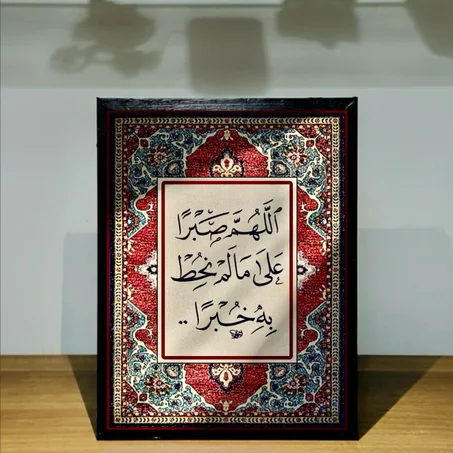 اللَّهُمَّ صَبْرًا
عَلَىٰ مَا لَمْ نُحِطْ
بِهِ خُبْرًا..